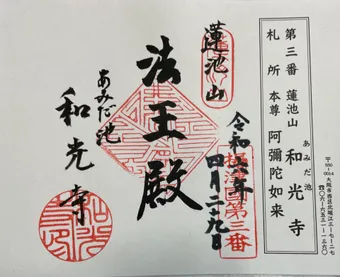 第三番 蓮池山 和光寺
あみだ池
札所 本尊 阿彌陀如来
〒550-0014 大阪市西区北堀江三-七-二七
蓮池山
法王殿
あみだ池
和光寺
四月二十九日
第三番